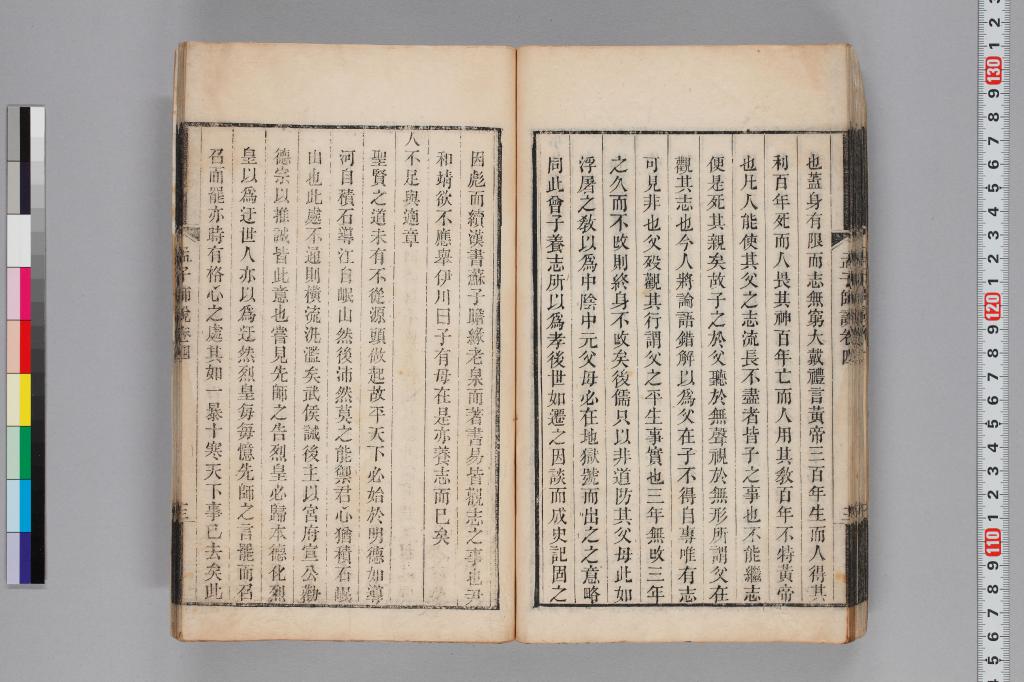 也蓋身有限而志無窮大戴禮言黃帝三百年生而人得其
利百年死而人畏其神百年亡而人用其敎百年不特黃帝
也凡人能使其父之志流長不盡者皆子之事也不能繼志
便是死其親矣故子之於父聽於無聲視於無形所謂父在
觀其志也今人將論語錯解以爲父在子不得自專唯有志
可見非也父歿觀其行謂父之平生事實也三年無改三年
之久而不改則終身不改矣後儒只以非道防其父母此如
浮屠之敎以爲中陰中元父母必在地獄號而出之之意略
同此曾子養志所以爲孝後世如遷之因談而成史記固之
孟子師說卷四
三
因彪而續漢書蘇子瞻緣老泉而著書易皆觀志之事也尹
和靖欲不應舉伊川曰子有母在是亦養志而已矣
人不足與適章
聖賢之道未有不從源頭做起故平天下必始於明德如導
河自積石導江自岷山然後沛然莫之能禦君心猶積石岷
山也此處不通則橫流汎濫矣武侯誠後主以宮府宣公勸
德宗以推誠皆此意也嘗見先師之告烈皇必歸本德化烈
皇以爲迂世人亦以爲迂然烈皇每每憶先師之言罷而召
召而罷亦時有格心之處其如一暴十寒天下事已去矣此
孟子師說卷四
三
130
120
110